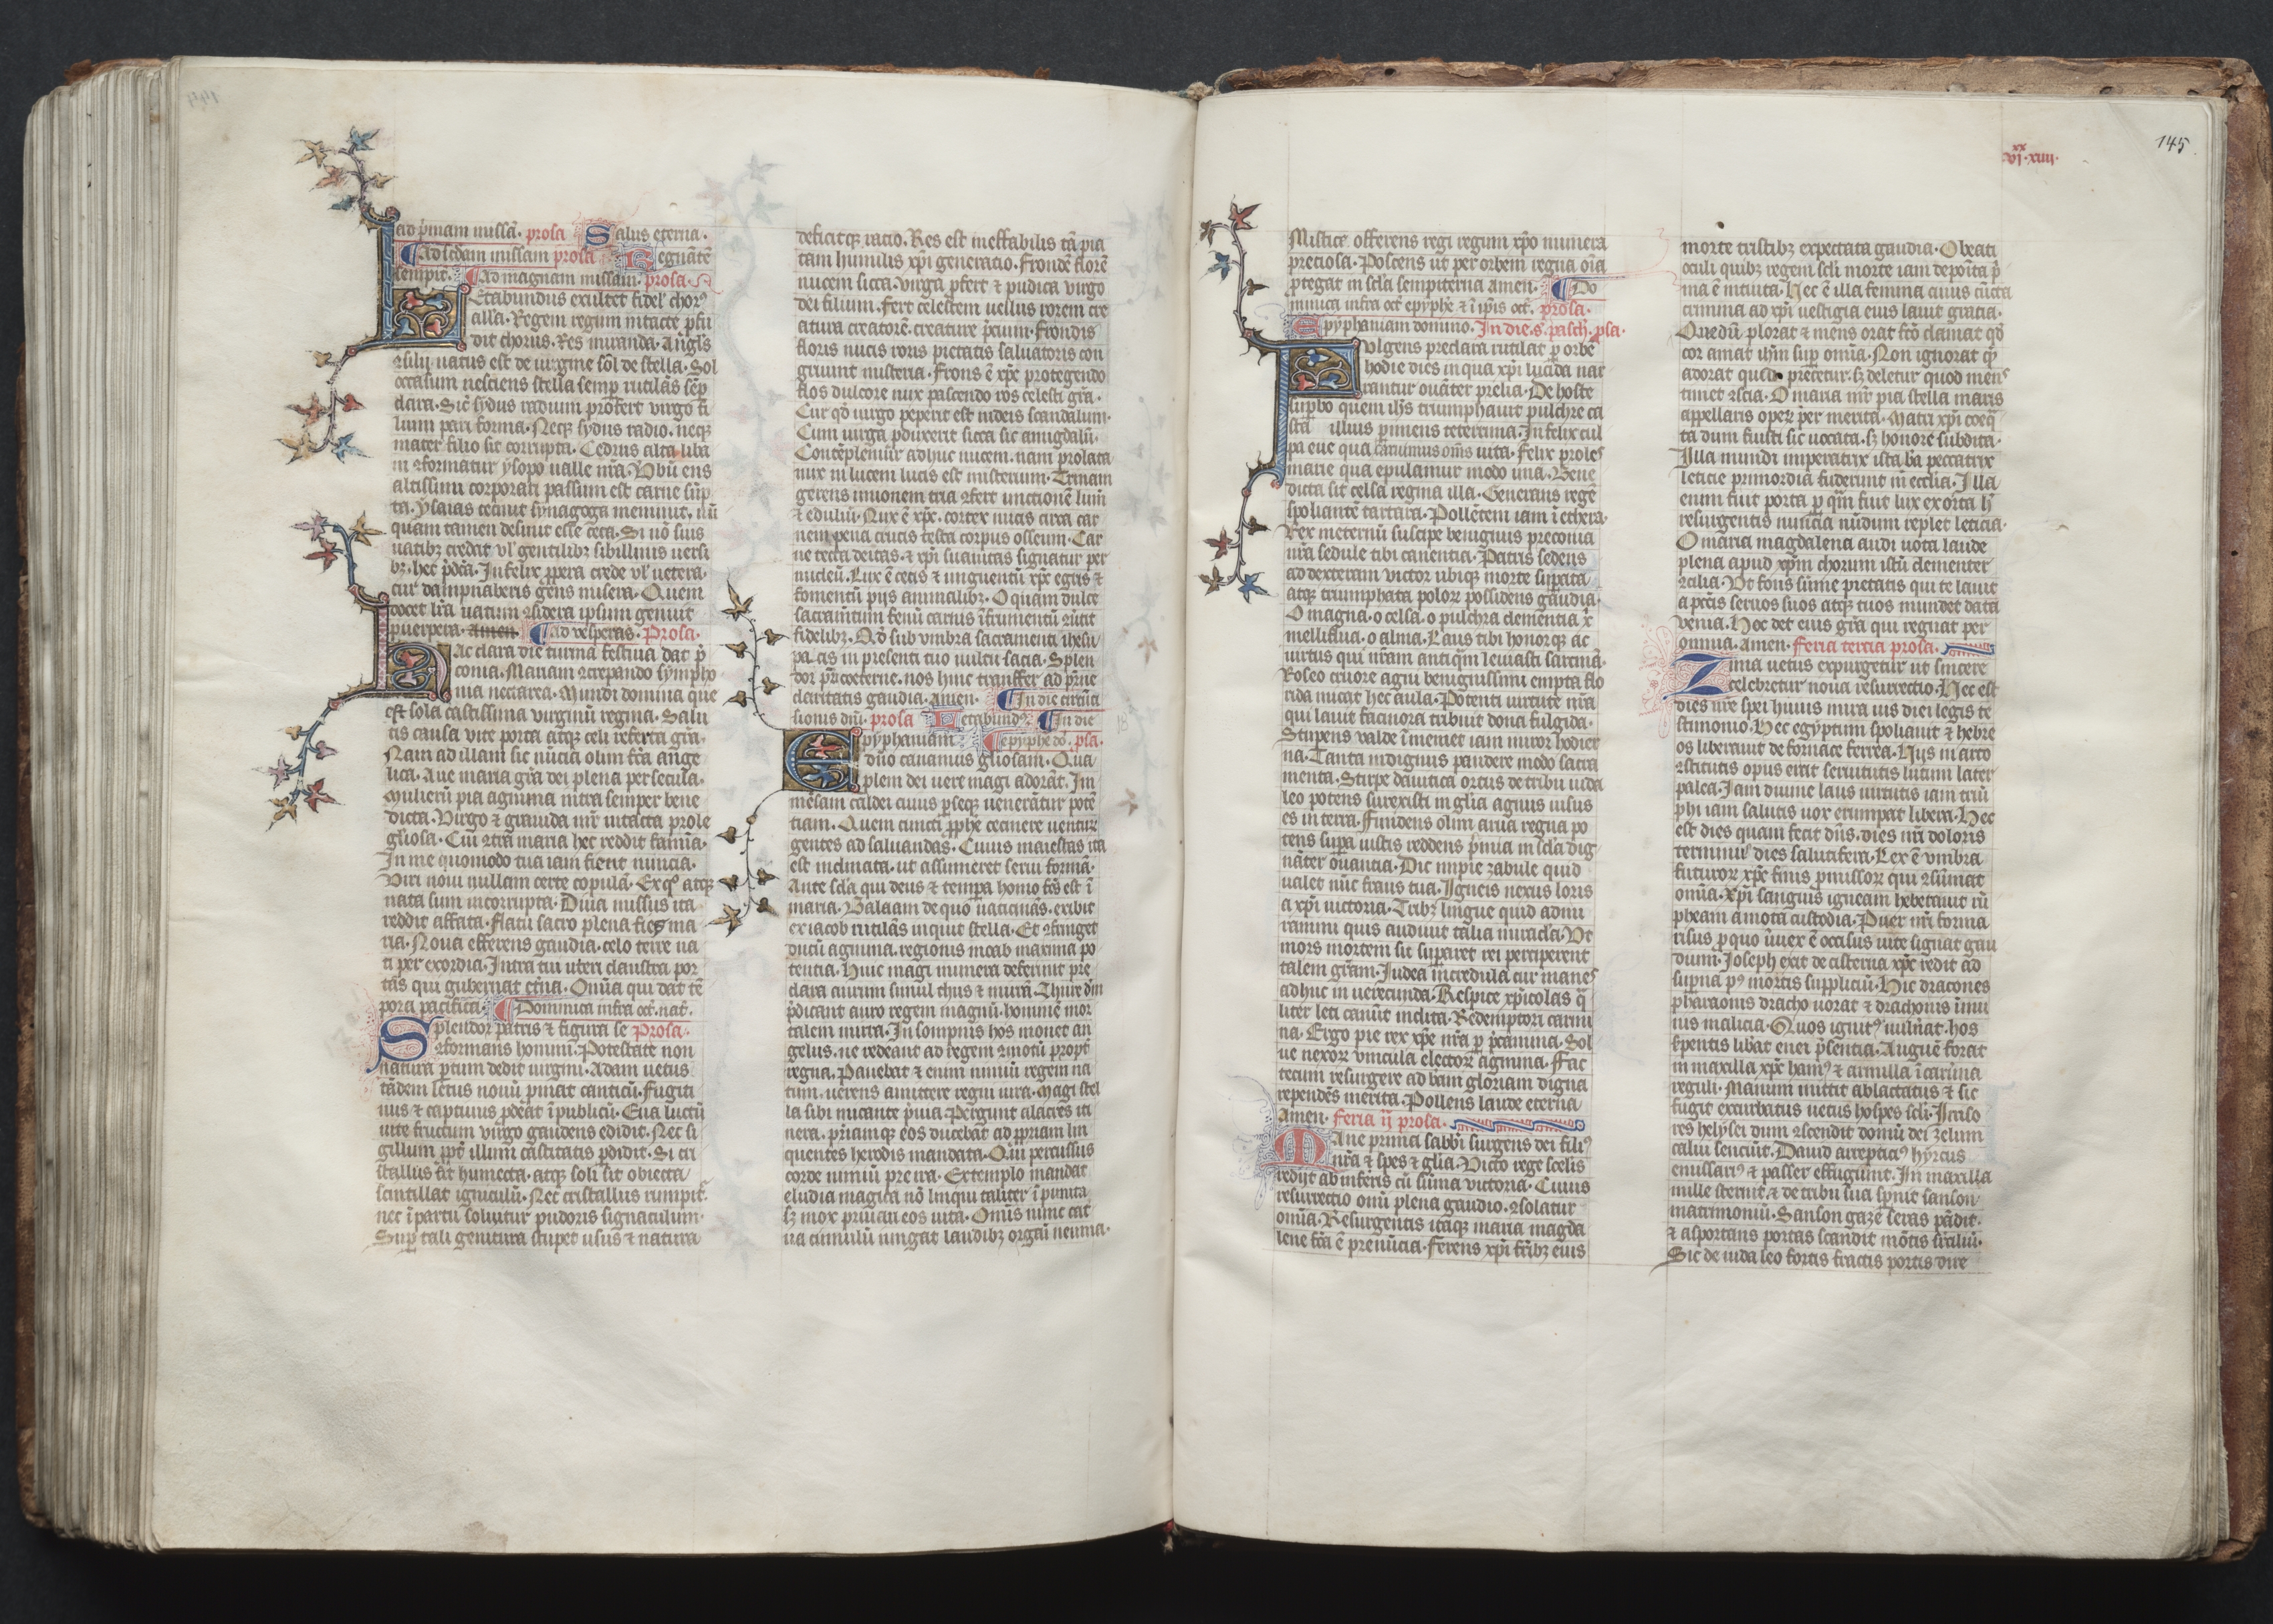 ad p̄mam missā. prosa Salus eterna.
Ad scdam missam prosa Regnātē
sempit̄. Ad magnam missam. prosa.
Letabundus exultet fidel' chorꝰ
all'a. Regem regum intacte ꝓfu
dit thorus. Res miranda. Angl's
ꝯsilij natus est de uirgine sol' de stella. Sol
occasum nesciens stella semꝑ rutilās sēꝑ
clara. Sic̄ sydus radium profert uirgo fi
lium pari forma. Neqꝫ sydus radio. neqꝫ
mater filio fit corrupta. Cedrus alta liba
ni ꝯformatur ysopo ualle nr̄a. Vbū ens
altissimi corporari passum est carne sūp
ta. Ysaias cecinit synagoga meminit. nū
quam tamen desinit esse ceca. Si nō suis
uatibꝫ credat ul' gentilibꝫ sibillinis uersi
bꝫ. hec p̄dc̄a. Infelix ꝓpera crede ul' uetera.
cur dampnaberis gens misera. Quem
docet lr̄a natum ꝯsidera ipsum genuit
puerpera. amen. Ad vesperas. Prosa.
Hac clara die turma festiua dat p̄
conia. Mariam ꝯcrepando sympho
nia nectarea. Mundi domina que
est sola castissima virginū regina. Salu
tis causa vite porta atqꝫ celi referta gr̄a.
Nam ad illam sic nūcia olim fc̄a ange
lica. Aue maria gr̄a dei plena per secula.
Mulierū pia agmina intra semper bene
dicta. Virgo et grauida mr̄ intacta prole
gl'iosa. Cui ꝯtra maria hec reddit famīa.
In me quomodo tua iam fient nuncia.
Viri noui nullam certe copulā. Ex qꝰ atqꝫ
nata sum incorrupta. Diua missus ita
reddit affata. Flatu sacro plena fies ma
ria. Noua efferens gaudia. celo terre na
ti per exordia. Intra tui uteri claustra por
tas qui gubernat etn̄a. Omīa qui dat tē
pora pacifica. Dominica infra oct̄. nat̄.
Splendor patris et figura se Prosa.
ꝯformans homini. Potestate non
natura ꝑtum dedit uirgini. Adam uetus
tādem letus nouū pmat canticū. Fugiti
uus et captiuus ꝓdeat ī publicū. Eua luctū
uite fructum virgo gaudens edidit. Nec si
gillum ꝓpt̄ illum castitatis ꝑdidit. Si cri
stallus sit humecta. atqꝫ soli sit obiecta
scintillat igniculū. Nec cristallus rumpit̄.
nec ī partu soluitur pudoris signaculum.
Suꝑ tali genitura stupet usus et natura
deficitqꝫ ratio. Res est ineffabilis tā pia
tam humilis xp̄i generatio. Frondē florē
nucem sicca uirga ꝓfert et pudica virgo
dei filium. Fert celestem uellus rorem cre
atura creatorē. creature p̄cium. Frondis
floris nucis roris pietatis saluatoris con
gruunt misteria. Frons ē xp̄c protegendo
flos dulcore nux pascendo ros celesti gr̄a.
Cur qd̄ uirgo peperit est iudeis scandalum.
Cum uirga ꝓduxerit sicca sic amigdalū.
Contēplemur adhuc nucem. nam prolata
nux in lucem lucis est misterium. Trinam
gerens unionem tria ꝯfert unctionē lum̄
et edulīū. Nux ē xp̄c. cortex nucis circa car
nem pena crucis testa corpus osseum. Car
ne tecta deitas. et xp̄i suauitas signatur per
nucleū. Lux ē cecis et unguentū xp̄c egris et
fomentū pijs animalibꝫ. O quam dulce
sacramentum fenū carnis ī frumentū ꝯuertit
fidelibꝫ. Qd̄ sub vmbra sacramenti ihesu
pascis in presenti tuo uultu sacia. Splen
dor p̄ri coeterne. nos hinc transfer ad pr̄ne
claritatis gaudia. amen. In die circūci
sionis dn̄i. prosa Letabundꝰ. In die
Epyphaniam epyphe dō. psa.
dn̄o canamus gl'iosam. Qua
plem dei uere magi adorāt. Im
mēsam caldei cuius ꝑseqꝫ uenerātur potē
tiam. Quem cuncti ꝓphe cecinere uenturꝫ
gentes ad saluandas. Cuius maiestas ita
est inclinata. ut assumeret serui formā.
Ante scl'a qui deus et tempꝑa homo fc̄s est ī
maria. Balaam de quo uaticinās. exibit
ex iacob rutilās inquit stella. Et ꝯfringet
ducū agmina. regionis moab maxima po
tentia. Huic magi munera deferunt pre
clara aurum simul thus et mirrā. Thure dm̄
p̄dicant auro regem magnū. hominē mor
talem mirra. In sompnis hos monet an
gelus. ne redeant ad regem ꝯmotū propt̄
regna. Pauebat et enim nimiū regem na
tum. uerens amittere regni iura. Magi stel
la sibi micante p̄uia. Pergunt alacres iti
nera. ꝑriamqꝫ eos ducebat ad ꝓpriam lin
quentes herodis mandata. Qui percussus
corde nimiū pre ira. Extemplo mandat
eludia magica nō linqui taliter ī punita.
sꝫ mox priuari eos uita. Omīs nunc cat̄
ua cumulū iungat laudibꝫ organi neuma.
vi.xx xiiii.
145
Mistice offerens regi regum xp̄o munera
preciosa. Poscens ut per orbem regna oīa
ꝓtegat in scl'a sempiterna amen. Do
minica infra oct̄ epyphe et ī ip̄is oct̄. prosa.
Epyphaniam domino. In die s. pasch. psa.
Fulgens preclara rutilat ꝑ orbē
hodie dies in qua xp̄i lucida nar
rantur ouāter prelia. De hoste
suꝑbo quem ih̄s triumphauit pulchre ca
stra illius ꝑimens teterrima. Infelix cul
pa eue qua caruimus om̄s uita. Felix prolesꝰ
marie qua epulamur modo una. Bene
dicta sit celsa regina illa. Generans regē
spoliantē tartara. Pollētem iam ī ethera.
Rex ī eternū suscipe benignus preconia
nr̄a sedule tibi canentia. Patris sedens
ad dexteram victor ubiqꝫ morte suꝑata
atqꝫ triumphata poloꝝ possidens gaudia.
O magna. o celsa. o pulchra clementia x̄
melliflua. o alma. Laus tibi honorqꝫ ac
uirtus qui nr̄am antiq̄m leuiasti sarcinā.
Roseo cruore agni benignissimi empta flo
rida micat hec aula. Potenti uirtute nr̄a
qui lauit facinora tribuit dona fulgida.
Stupens valde ī memet iam miror hodier
na. Tanta indignus pandere modo sacra
menta. Stirpe dauitica ortus de tribu iuda
leo potens surrexisti in gl'ia agnus uisus
es in terra. Fundens olim arua regna po
tens suꝑa iustis reddens p̄mia in scl'a dig
nāter ouantia. Dic impie zabule quid
ualet nūc fraus tua. Igneis nexus loris
a xp̄i uictoria. Tribꝫ lingue quid admi
ramini quis audiuit talia miracl'a. Vt
mors mortem sic suꝑaret rei perciperent
talem gr̄am. Judea incredula cur manesꝰ
adhuc in uerecunda. Respice xp̄icolas q̄
liter leti canūt inclita. Redemptori carmi
na. Ergo pie rex xp̄e nr̄a ꝑ p̄camina. Sol
ue nexoꝝ vincula electoꝝ agmina. Fac
tecum resurgere ad bām gloriam digna
rependēs merita. Pollens laude eterna
Amen. Feria ij prosa.
Mane prima sabbī surgens dei filiꝰ
nr̄a et spes et gl'ia. Victo rege scelis
redijt ab inferis cū sūma victoria. Cuius
resurrectio omī plena gaudio. ꝯsolatur
omīa. Resurgentis itaqꝫ maria magda
lene fc̄a ē prenūcia. Ferens xp̄i fr̄ibꝫ eius
morte tristibꝫ expectata gaudia. O beati
oculi quibꝫ regem scl'i morte iam depoīta p̄
ma ē intuita. Hec ē illa femina cuius cūcta
crimina ad xp̄i uestigia eius lauit gratia.
Que dū plorat et mens orat fc̄o clamat qd̄
cor amat ih̄m suꝑ omīa. Non ignorat q̄
adorat quid precetur. sꝫ deletur quod mensꝰ
timet ꝯscia. O maria mr̄ pia stella maris
appellaris opeꝝ per merita. Matri xp̄i coeq̄
ta dum fuisti sic uocata. sꝫ honore subdita.
Illa mundi imperatrix ista bā peccatrix
leticie primordia fuderunt in ecclia. Illa
enim fuit porta ꝑ q̄m fuit lux exorta h̄
resurgentis nuncia mūdum replet leticia.
O maria magdalena audi uota laude
plena apud xp̄m chorum istū clementer
ꝯcilia. Vt fons sūme pietatis qui te lauit
a pcc̄is seruos suos atqꝫ tuos mundet data
venia. Hoc det eius gr̄a qui regnat per
omnia. Amen. Feria tercia prosa.
Zima uetus expurgetur ut sincere
celebretur noua resurrectio. Hec est
dies nr̄e spei huius mira uis diei legis te
stimonio. Hec egyptum spoliauit et hebre
os liberauit de fornace ferrea. Hijs in arto
ꝯstitutis opus erat seruitutis lutum later
palea. Jam diuine laus uirtutis iam triū
phi iam salutis uox erumpat libera. Hec
est dies quam fecit dn̄s. dies nr̄i doloris
terminꝰ dies salutifera. Lex ē vmbra
futuroꝝ xp̄c finis ꝓmissoꝝ qui ꝯsūmat
omīa. Xp̄i sanguis igneam hebetauit rū
pheam amota custodia. Puer nr̄i forma
risus ꝓ quo ūuex ē occisus uite signat gau
dium. Joseph exit de cisterna xp̄c redit ad
suꝑna pꝰ mortis suppliciū. Hic dracones
pharaonis draco uorat et draconis īmu
nis malicia. Quos ignitꝰ uulnāt. hos
ẜpentis libāt enei p̄sentia. Anguē forat
in maxilla xp̄c hamꝰ et armilla ī cauerna
reguli. Manum mittit ablactatus et sic
fugit exturbatus uetus hospes scl'i. Irriso
res helysei dum ꝯscendit domū dei zelum
calui senciūt. Dauid arrepticꝰ hyrcus
emissariꝰ et passer effugiunt. In maxilla
mille sternit. et de tribu sua sp̄nit sanson
matrimoniū. Sanson gazē seras pādit.
et asportans portas scandit mōtis ẜtaliū.
Sic de iuda leo fortis fractis portis dire